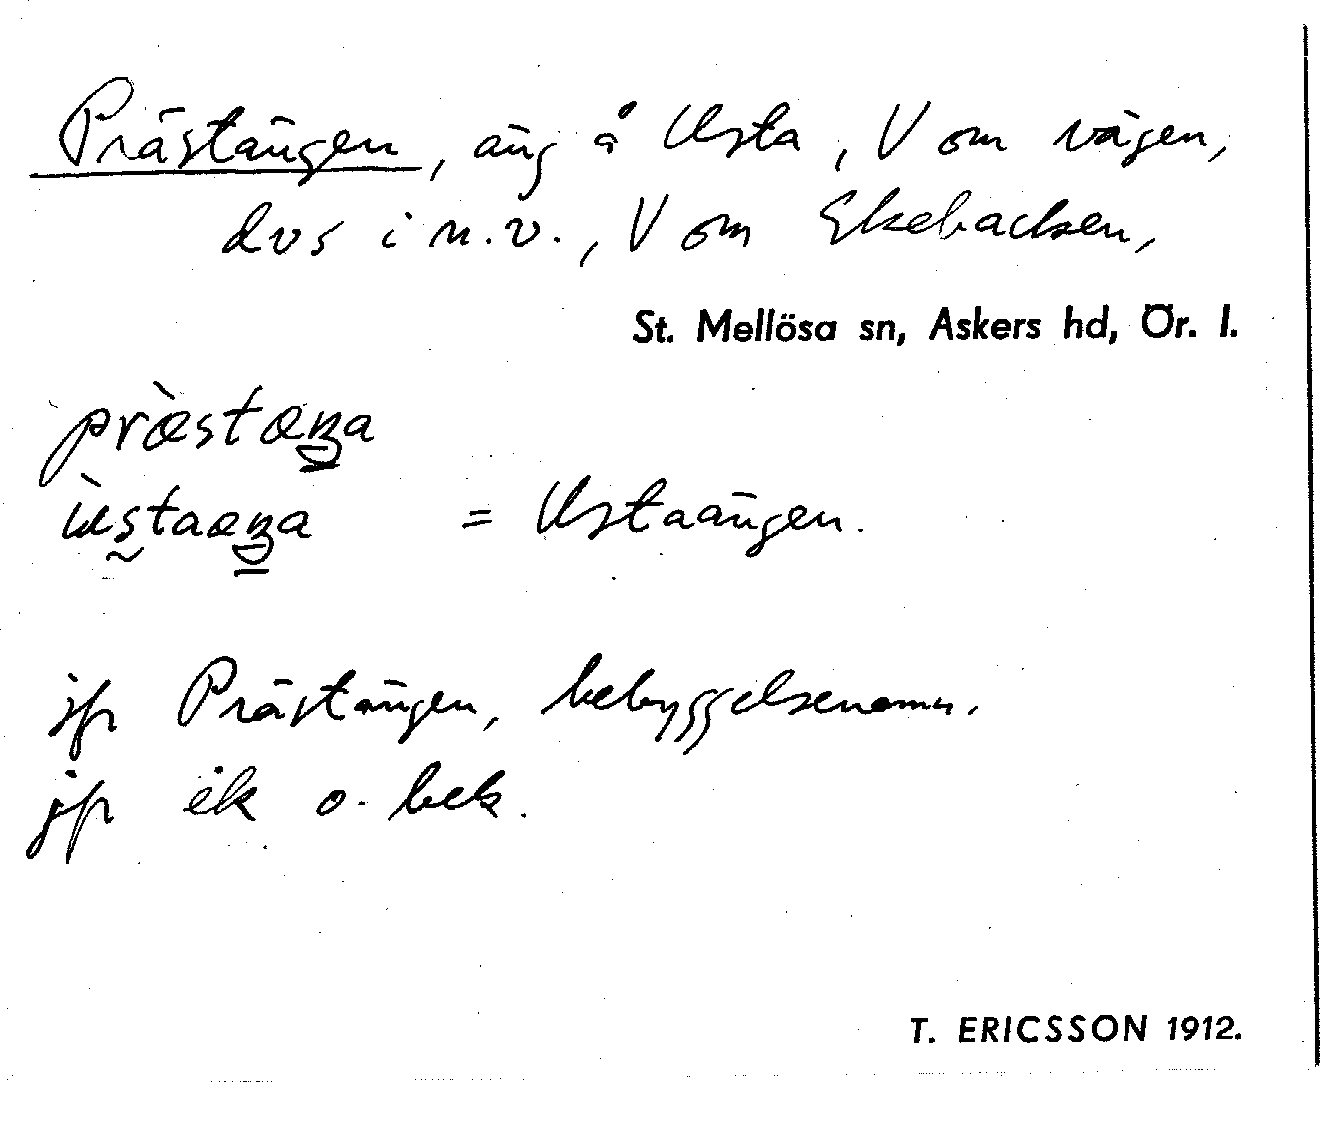 Prästängen, äng å Usta, V om vägen,
dvs i n.v., V om Ekebacken,
St. Mellösa sn, Askers hd, Ör. l.
præ̀stæŋa
ùstaæŋa = Ustaängen.
jfr Prästängen, bebyggelsenamn.
jfr ek o. bek.
T. ERICSSON 1912.